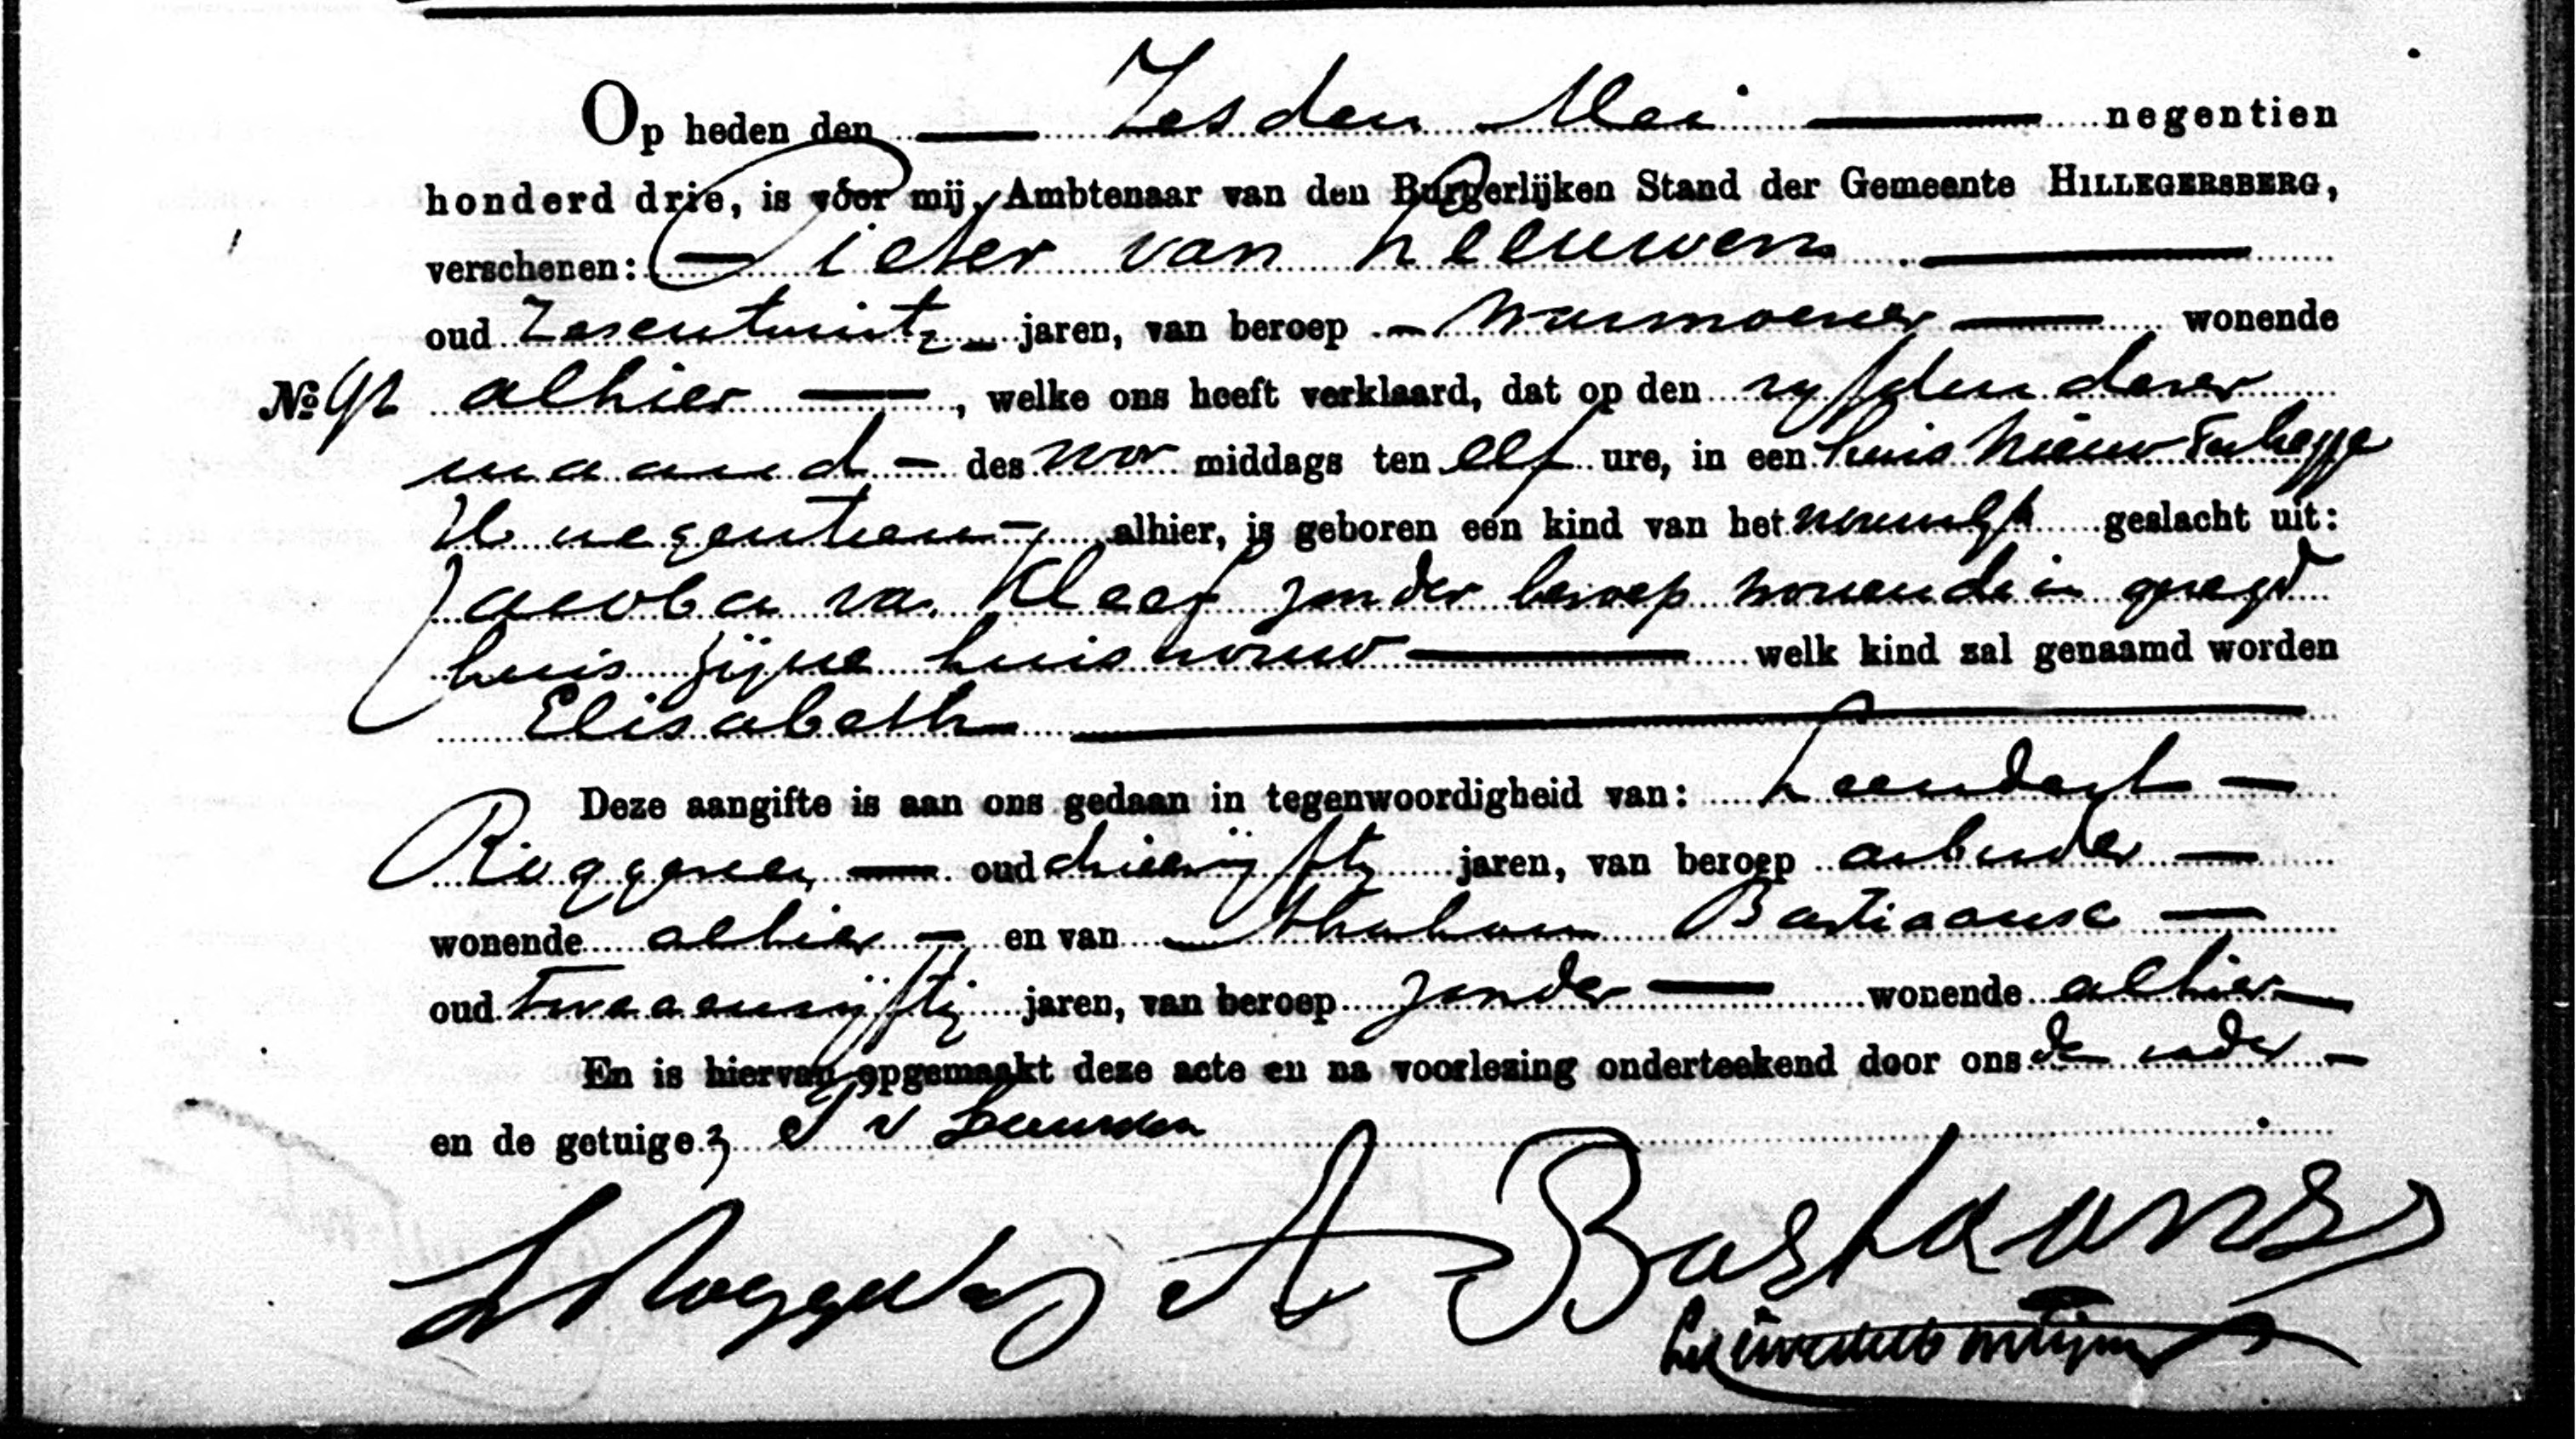 Op heden den Zesden Mei negentien
honderd drie, is vóór mij, Ambtenaar van den Burgerlijken Stand der Gemeente HILLEGERSBERG,
verschenen: Pieter van Leeuwen
oud Zesentwintig jaren, van beroep Warmoezier wonende
alhier, welke ons heeft verklaard, dat op den vijfden dezer
No
maand des voor middags ten elf ure, in een huis Nieuw Terbregge
negentien alhier, is geboren een kind van het vrouwelijk geslacht uit:
Jacoba van Kleef zonder beroep wonende in gezegd
huis zijne huisvrouw welk kind zal genaamd worden
Elisabeth
Deze aangifte is aan ons gedaan in tegenwoordigheid van: Leendert
oud drieenvijftig jaren, van beroep arbeider
wonende alhier en van Abraham Bastiaanse
oud tweeenvijftig jaren, van beroep zonder wonende alhier
En is hiervan opgemaakt deze acte en na voorlezing onderteekend door ons de vader
en de getuigen P v Leeuwen
A Bastiaanse